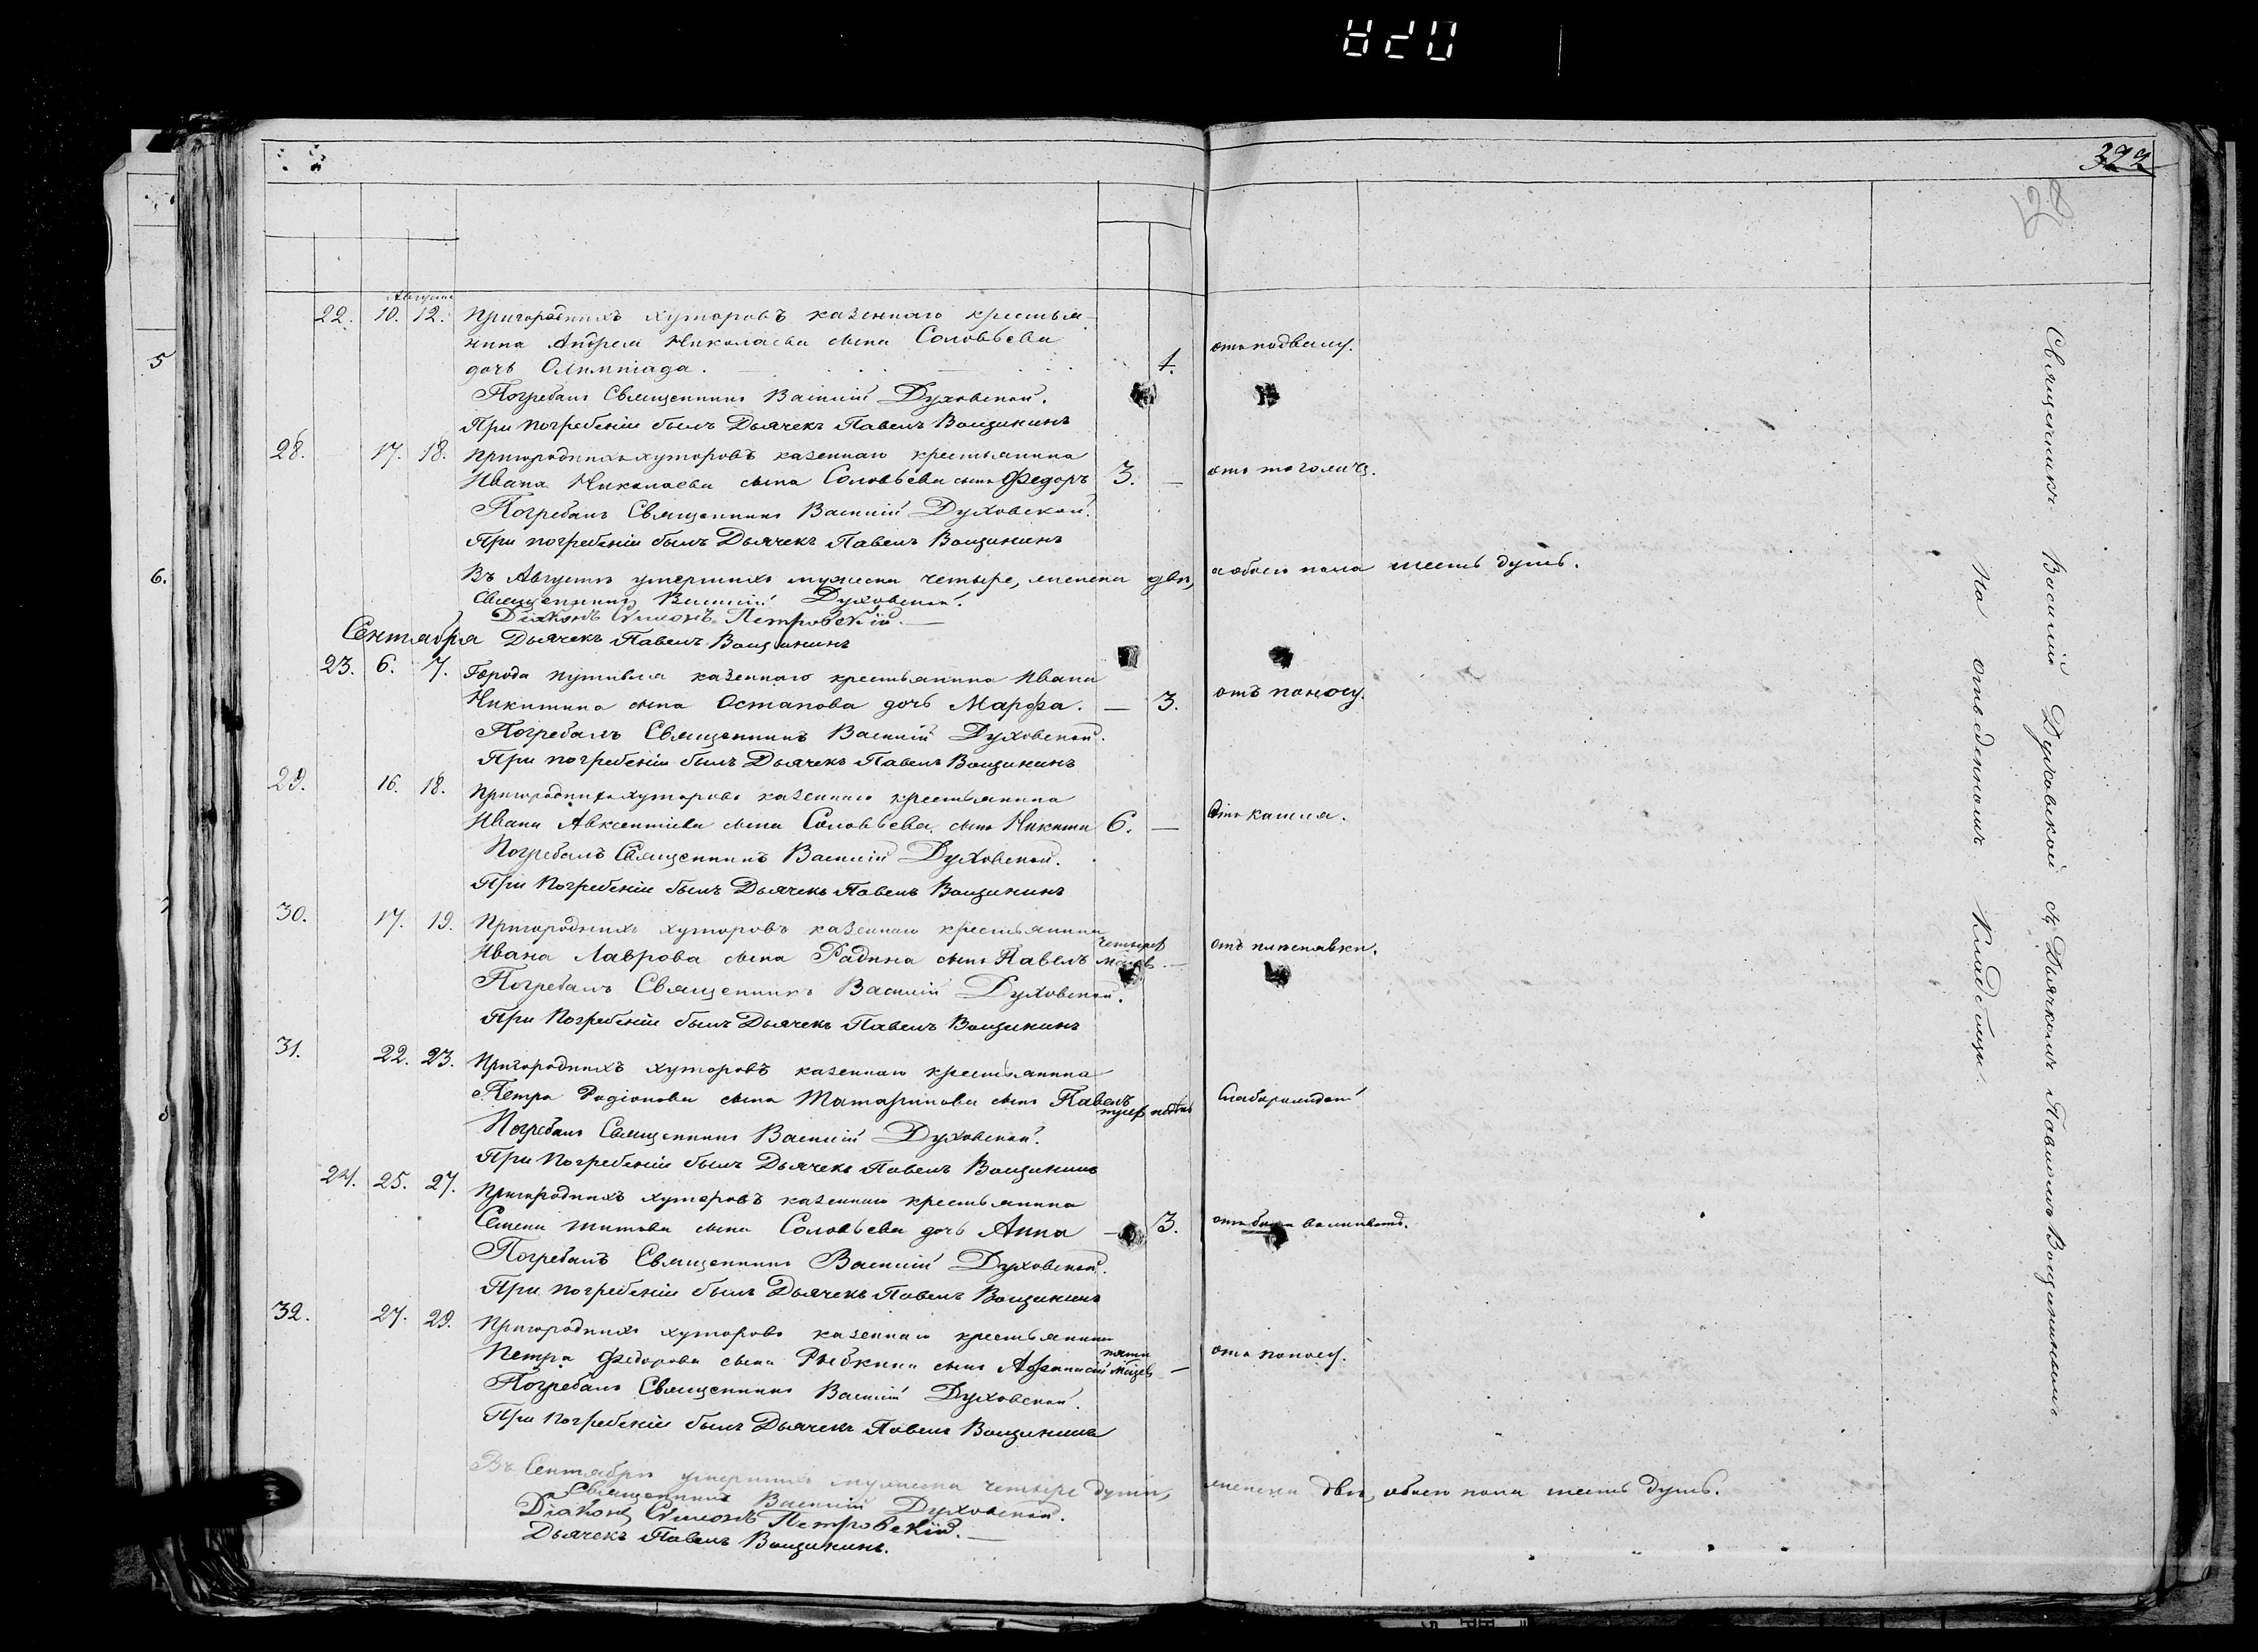 372
Августа
22. 10. 12. Пригородныхъ хуторовъ казеннаго крестья-
нина Андрея Николаева сына Соловьева
дочь Олимпіада. 1. отъ подвалу.
Погребалъ Священникъ Василій Духовской.
При погребеніи былъ Дьячекъ Павелъ Вощининъ
28. 17. 18. Пригородныхъ хуторовъ казеннаго крестьянина
Ивана Николаева сына Соловьева сынъ Федоръ 3. —
Погребалъ Священникъ Василій Духовской.
При погребеніи былъ Дьячекъ Павелъ Вощининъ
Въ Августѣ умершихъ мужеска четыре, женска двѣ, а обоего пола шесть душъ.
Священникъ Василій Духовской.
Діаконъ Симонъ Петровскій.
Сентября Дьячекъ Павелъ Вощининъ
23. 6. 7. Города Путивля казеннаго крестьянина Ивана
Никитина сына Остапова дочь Марфа. — 3. отъ поносу.
Погребалъ Священникъ Василій Духовской.
При погребеніи былъ Дьячекъ Павелъ Вощининъ
29. 16. 18. Пригородныхъ хуторовъ казеннаго крестьянина
Ивана Авксентіева сына Соловьева сынъ Никита 6. — Отъ кашля.
Погребалъ Священникъ Василій Духовской.
При Погребеніи былъ Дьячекъ Павелъ Вощининъ
30. 17. 19. Пригородныхъ хуторовъ казеннаго крестьянина
Ивана Лаврова сына Радина сынъ Павелъ четырех месяцъ — отъ плюснявки.
Погребалъ Священникъ Василій Духовской.
При Погребеніи былъ Дьячекъ Павелъ Вощининъ
31. 22. 23. Пригородныхъ хуторовъ казеннаго крестьянина
Петра Родіонова сына Татаринова сынъ Павелъ трех недѣль Слаборожден
Погребалъ Священникъ Василій Духовской.
При Погребеніи былъ Дьячекъ Павелъ Вощининъ
24. 25. 27. Пригородныхъ хуторовъ казеннаго крестьянина
Семена Титова сына Соловьева дочь Анна — 3.
Погребалъ Священникъ Василій Духовской.
При погребеніи былъ Дьячекъ Павелъ Вощининъ
32. 27. 29. Пригородныхъ хуторовъ казеннаго крестьянина
Петра Федорова сына Рыбкина сынъ Афанасій пяти месяцъ — отъ поносу.
Погребалъ Священникъ Василій Духовской.
При Погребеніи былъ Дьячекъ Павелъ Вощининъ
Въ Сентябрѣ умершихъ мужеска четыре души, женска двѣ, обоего пола шесть душъ.
Священникъ Василій Духовской.
Діаконъ Симонъ Петровскій.
Дьячекъ Павелъ Вощининъ.
Священникъ Василій Духовской съ Дьячкомъ Павломъ Вощининымъ
На отведенномъ Кладбищѣ
5
6.
8